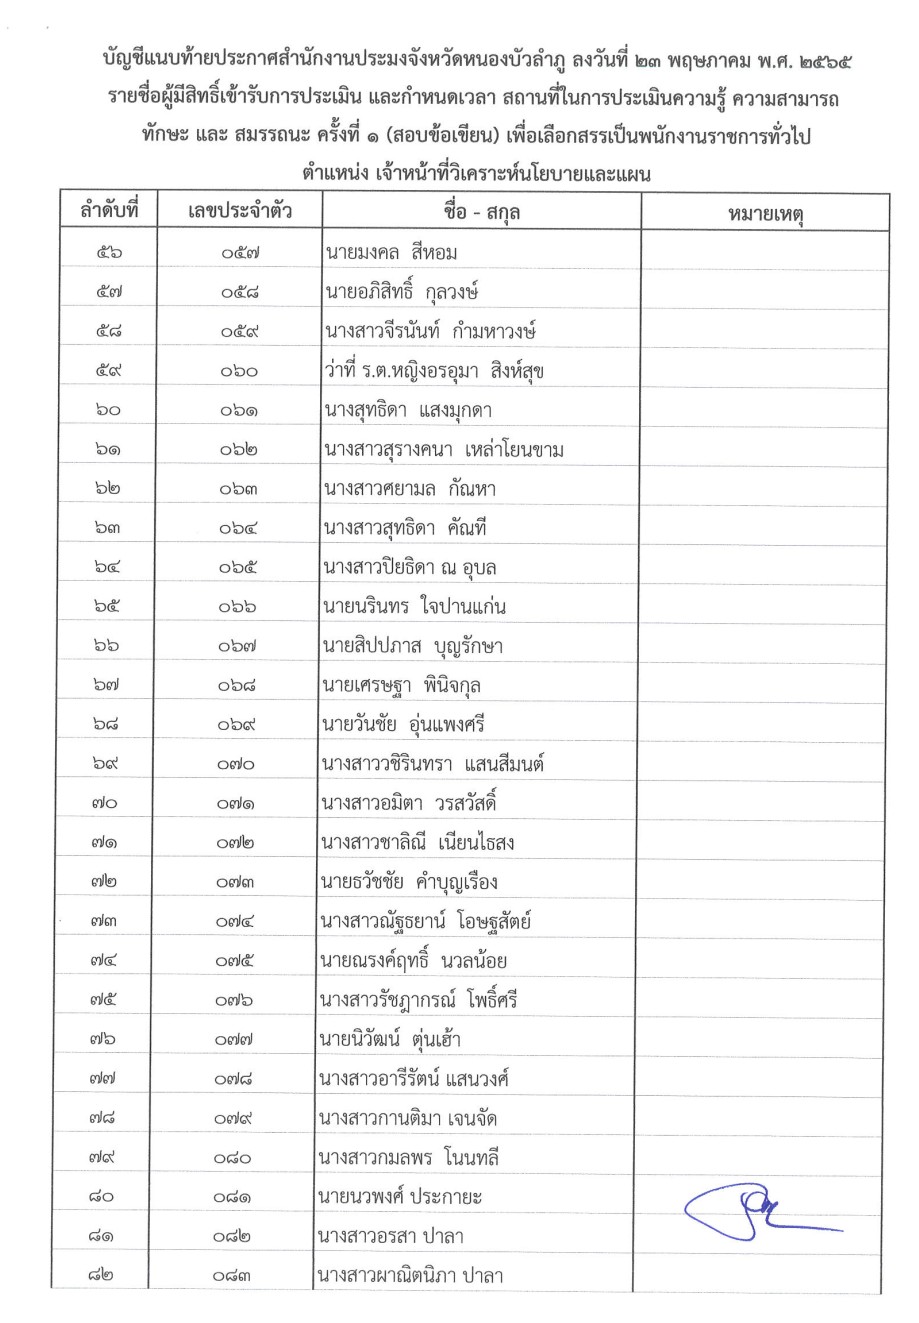 บัญชีแนบท้ายประกาศสำนักงานประมงจังหวัดหนองบัวลำภู ลงวันที่ ๒๓ พฤษภาคม พ.ศ. ๒๕๖๕
รายชื่อผู้มีสิทธิ์เข้ารับการประเมิน และกำหนดเวลา สถานที่ในการประเมินความรู้ ความสามารถ
ทักษะ และ สมรรถนะ ครั้งที่ ๑ (สอบข้อเขียน) เพื่อเลือกสรรเป็นพนักงานราชการทั่วไป
ตำแหน่ง เจ้าหน้าที่วิเคราะห์นโยบายและแผน
ลำดับที่ เลขประจำตัว ชื่อ - สกุล หมายเหตุ
๕๖ ๐๕๗ นายมงคล สีหอม
๕๗ ๐๕๘ นายอภิสิทธิ์ กุลวงษ์
๕๘ ๐๕๙ นางสาวจีรนันท์ กำมหาวงษ์
๕๙ ๐๖๐ ว่าที่ ร.ต.หญิงอรอุมา สิงห์สุข
๖๐ ๐๖๑ นางสุทธิดา แสงมุกดา
๖๑ ๐๖๒ นางสาวสุรางคนา เหล่าโยนขาม
๖๒ ๐๖๓ นางสาวศยามล กัณหา
๖๓ ๐๖๔ นางสาวสุทธิดา คัณที
๖๔ ๐๖๕ นางสาวปิยธิดา ณ อุบล
๖๕ ๐๖๖ นายนรินทร ใจปานแก่น
๖๖ ๐๖๗ นายสิปปภาส บุญรักษา
๖๗ ๐๖๘ นายเศรษฐา พินิจกุล
๖๘ ๐๖๙ นายวันชัย อุ่นแพงศรี
๖๙ ๐๗๐ นางสาววชิรินทรา แสนสีมนต์
๗๐ ๐๗๑ นางสาวอมิตา วรสวัสดิ์
๗๑ ๐๗๒ นางสาวชาลิณี เนียนไธสง
๗๒ ๐๗๓ นายธวัชชัย คำบุญเรือง
๗๓ ๐๗๔ นางสาวณัฐธยาน์ โอษฐสัตย์
๗๔ ๐๗๕ นายณรงค์ฤทธิ์ นวลน้อย
๗๕ ๐๗๖ นางสาวรัชฎากรณ์ โพธิ์ศรี
๗๖ ๐๗๗ นายนิวัฒน์ ตุ่นเฮ้า
๗๗ ๐๗๘ นางสาวอารีรัตน์ แสนวงศ์
๗๘ ๐๗๙ นางสาวกานติมา เจนจัด
๗๙ ๐๘๐ นางสาวกมลพร โนนทลี
๘๐ ๐๘๑ นายนวพงศ์ ประกายะ
๘๑ ๐๘๒ นางสาวอรสา ปาลา
๘๒ ๐๘๓ นางสาวผาณิตนิภา ปาลา